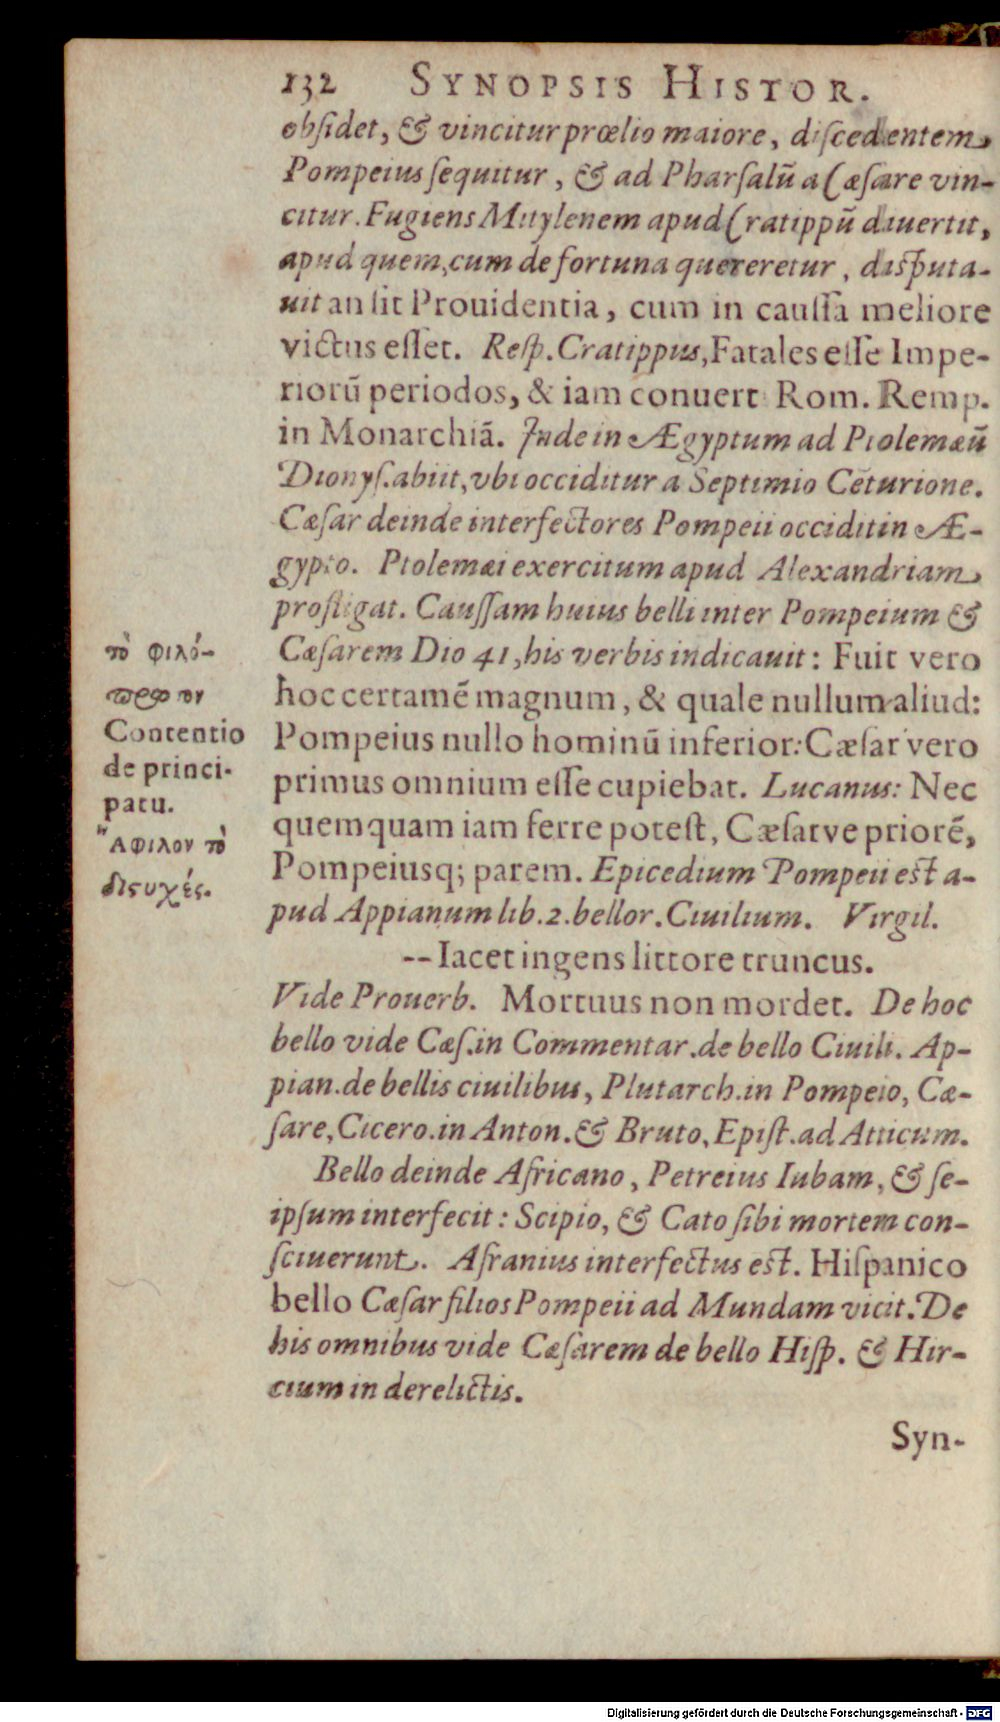 132 SYNOPSIS HISTOR.
obſidet, & vincitur prœlio maiore, diſcedentem
Pompeius ſequitur, & ad Pharſalũ a Cæſare vin-
citur. Fugiens Mitylenem apud Cratippũ diuertit,
apud quem, cum de fortuna quereretur, diſputa-
uit an ſit Prouidentia, cum in cauſſa meliore
victus eſſet. Reſp. Cratippus, Fatales eſſe Impe-
riorũ periodos, & iam conuert Rom. Remp.
in Monarchiã. Inde in Ægyptum ad Ptolemæũ
Dionyſ. abiit, vbi occiditur a Septimio Cẽturione.
Cæſar deinde interfectores Pompeii occidit in Æ-
gypto. Ptolemæi exercitum apud Alexandriam
profligat. Cauſſam huius belli inter Pompeium &
Cæſarem Dio 41, his verbis indicauit: Fuit vero
hoc certamẽ magnum, & quale nullum aliud:
Pompeius nullo hominũ inferior: Cæſar vero
primus omnium eſſe cupiebat. Lucanus: Nec
quemquam iam ferre poteſt, Cæſarve priorẽ,
Pompeiusq; parem. Epicedium Pompeii eſt a-
pud Appianum lib. 2. bellor. Ciuilium. Virgil.
-- Iacet ingens littore truncus.
Vide Prouerb. Mortuus non mordet. De hoc
bello vide Cæſ. in Commentar. de bello Ciuili. Ap-
pian. de bellis ciuilibus, Plutarch. in Pompeio, Cæ-
ſare, Cicero. in Anton. & Bruto, Epiſt. ad Atticum.
Bello deinde Africano, Petreius Iubam, & ſe-
ipſum interfecit: Scipio, & Cato ſibi mortem con-
ſciuerunt. Afranius interfectus eſt. Hiſpanico
bello Cæſar filios Pompeii ad Mundam vicit. De
his omnibus vide Cæſarem de bello Hiſp. & Hir-
cium in derelictis.
Syn-
τὸ φιλό-
Contentio
de princi-
patu.
Ἄφιλον τὸ
δυςυχές.
Digitalisierung gefördert durch die Deutsche Forschungsgemeinschaft - DFG